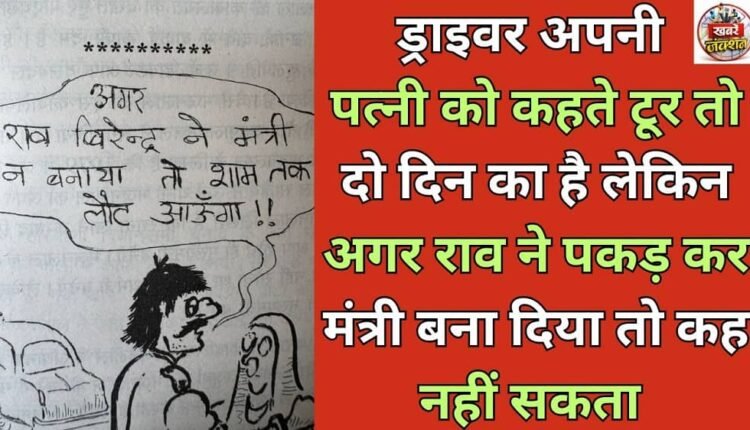 **********
अगर
राव बिरेन्द्र ने मंत्री
न बनाया तो शाम तक
लौट आऊँगा !!
ड्राइवर अपनी
पत्नी को कहते टूर तो
दो दिन का है लेकिन
अगर राव ने पकड़ कर
मंत्री बना दिया तो कह
नहीं सकता
खबरें
जंक्शन